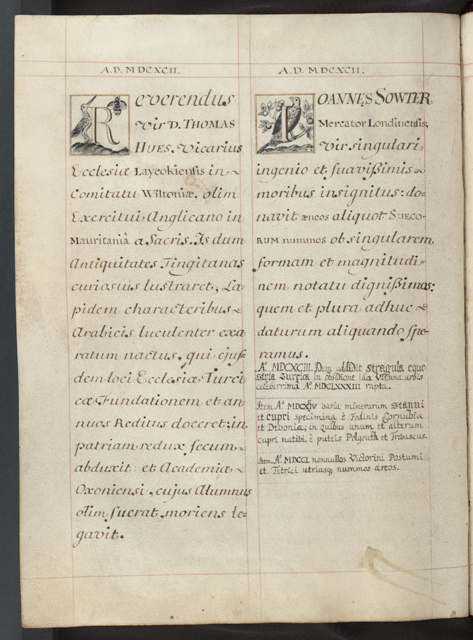 A.D. MDCXCII.
Reverendus
Vir D. THOMAS
HUES, Vicarius
Ecclesiæ Laycokiensis in
Comitatu Wiltoniæ, olim
Exercitui Anglicano in
Mauritaniâ a Sacris. Is dum
Antiquitates Tingitanas
curiosius lustraret, La
pidem characteribus
Arabicis luculenter exa
ratum nactus, qui ejusf
dem loci Ecclesiæ Turci
cæ Fundationem et an
nuos Reditus doceret; in
patriam redux secum
abduxit: et Academiæ
Oxoniensi, cujus Alumnus
olim fuerat, moriens le=
gavit.
A.D. MDCXCII.
IOANNES SOWTER,
Mercator Londinensis,
Vir singulari
ingenio et suavissimis
moribus insignitus: do=
navit æneos aliquot SUECO-
RUM nummos ob singularem
formam et magnitudi=
nem notatu dignissimos:
quem et plura adhuc
daturum aliquando spe=
ramus.
Aº. MDCXCIII. Dein addidit stragula eque
stria Turcica in obsidione illa Viennæ urbis
celeberrima Aº. MDCLXXXIII rapta.
Item Aº MDCXCIV varia minerarum stanni
et cupri specimina è Fodinis Cornubiæ
et Devoniæ, in quibus unum et alterum
cupri nativi, è puteis Polgouth et Trebascus.
Item Aº. MDCCI. nonnullos Victorini Postumi
et Tetrici utriusq; nummos æreos.